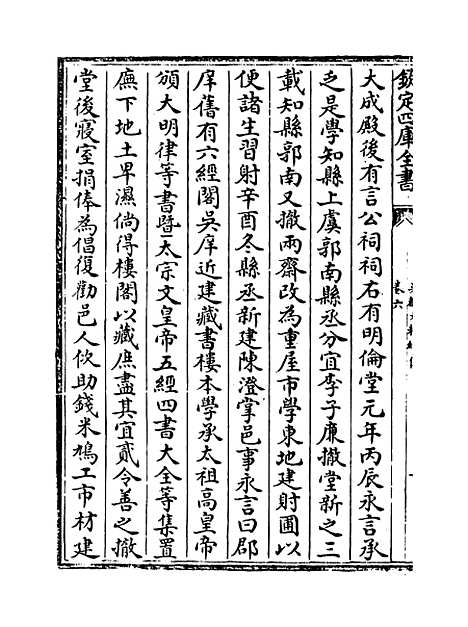 欽定四庫全書
卷六
大成殿後有言公祠祠右有明倫堂元年丙辰永言承
乏是學知縣上虞郭南縣丞分宜李子廉撤堂新之三
載知縣郭南又撤兩齋改為重屋市學東地建射圃以
便諸生習射辛酉冬縣丞新建陳澄掌邑事永言曰郡
庠舊有六經閣吳庠近建藏書樓本學承太祖高皇帝
頒大明律等書暨太宗文皇帝五經四書大全等集置
廡下地土卑濕倘得樓閣以藏庶盡其宜貳令善之撤
堂後寢室捐俸為倡復勸邑人佽助錢米鳩工市材建